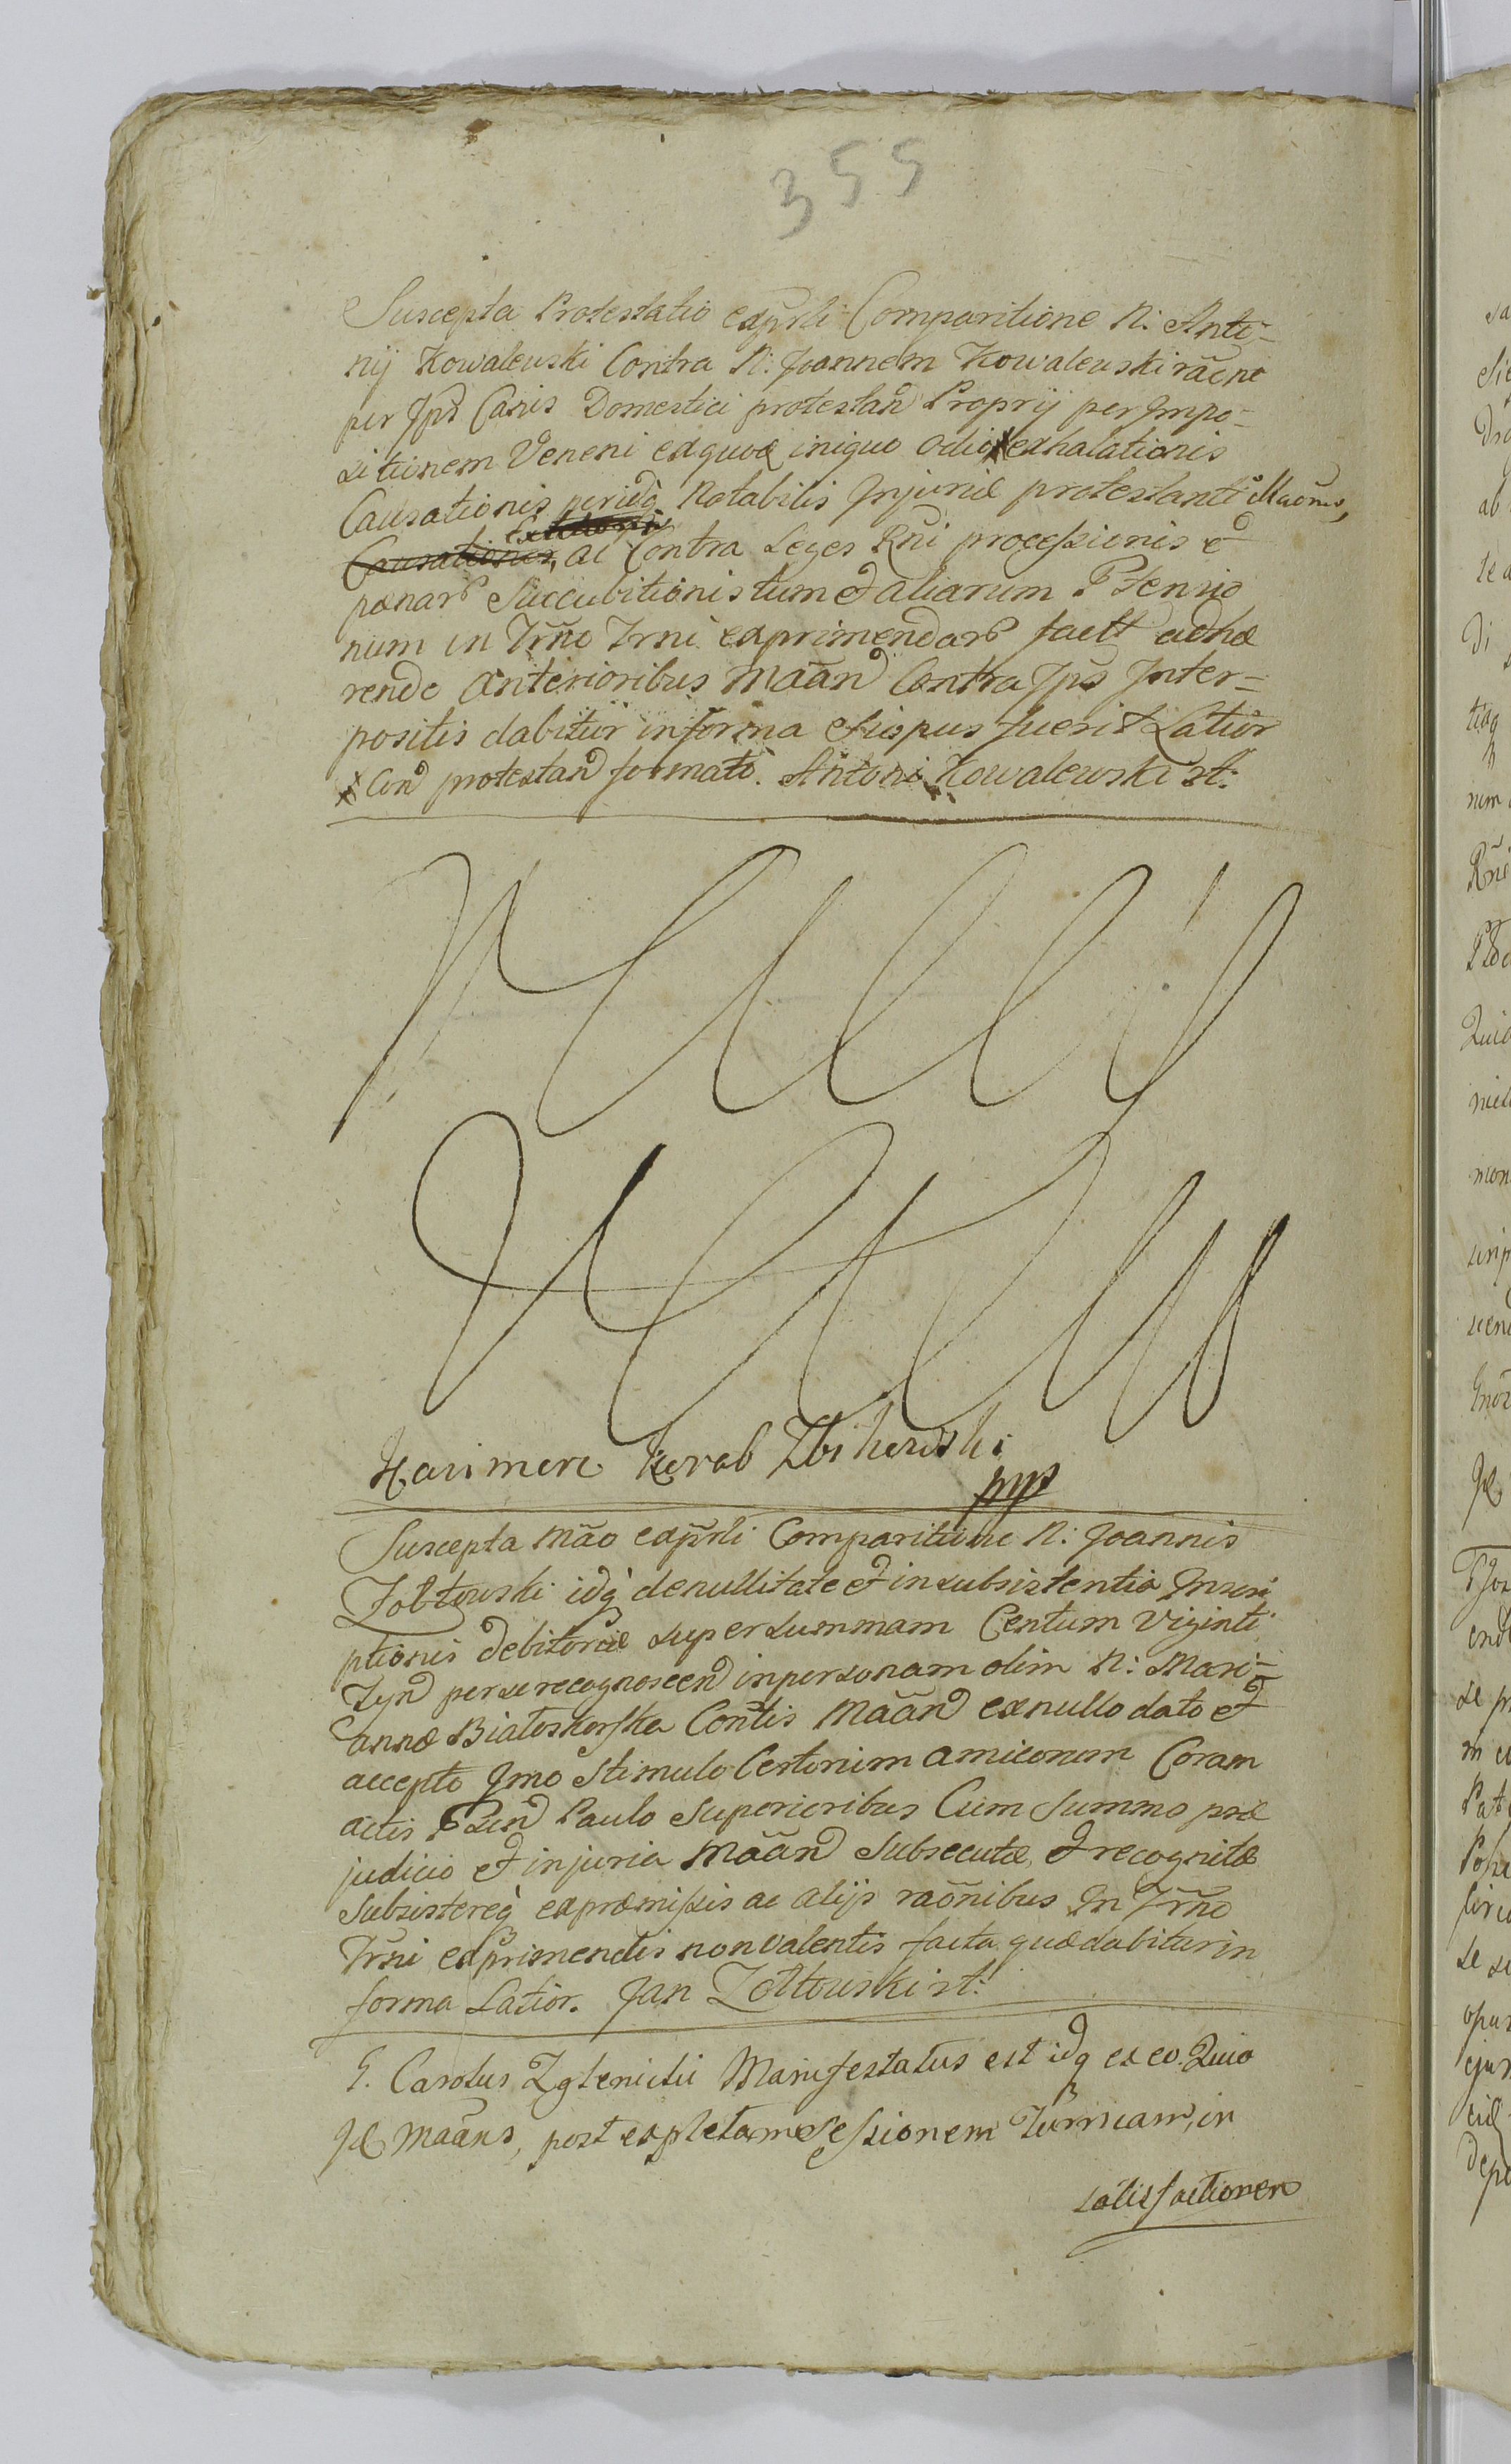 355
Suscepta Protestatio exp̃rli Comparitione N: Anto-
nij Kowalewski Contra N: Joannem Kowalewski rãe ne
per Jps Canis Domestici protestan Proprij per Impo-
sitionem Veneni exquoq iniquo odio x exhalationis
Causationis periculo Notabilis Injuriæ protestanti
Causationis, ac Contra Leges Rñi processionis et
pænar Succubitionis tum et aliarum
num in Trño Trni exprimendar fact adhæ
rendo anterioribus Mãan Contra Jps Inter=
positis dabitur in forma si opus fuerit Latior
x Con protestan formato. Antoni Kowalewski st:
Kazimerz Korab Zbikowski
mp
Suscepta Mão exp̃rli Comparitione N: Joannis
Zołtowski idq de nullitate et insubsistentia Inscri
ptionis debitoriæ super summam Centum Viginti
Tyn per se recognoscen in personam olim N: Mari=
annæ Białoskorska Contis Mãan ex nullo dato et
accepto Imo Stimulo Certorum amicorum Coram
actis Paulo Superioribus Cum Summo præ
judicio et injuria Mãan Subsecutæ, et recognitæ
Subsistereq ex præmissis ac alijs raõnibus In Trño
Trñi exprimendis non valentis facta quæ dabitur in
forma Latior. Jan Zołtowski st:
G. Carolus Zglenicki Manifestatus est idq ex eo. Quia
Jd Mãans, post expletam Sessionem Turnicam, in
satisfactionem